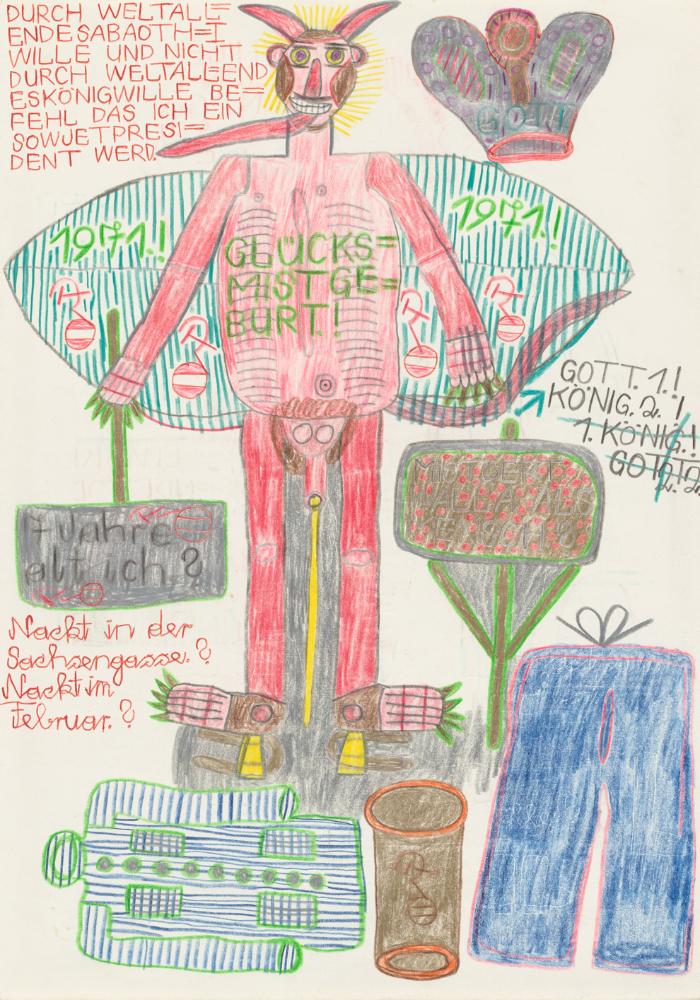 DURCH WELTALL=
ENDESABAOTH=I
WILLE UND NICHT
DURCH WELTALLEEND
ESKÖNIGWILLE BE=
FEHL DAS ICH EIN
SOWJETPRESI=
DENT WERD.
1971.!
1971.!
GLÜCKS=
MISTGE=
BURT.!
GOTT. 1.!
KÖNIG. 2. !
1. KÖNIG.!
7 Jahre
alt ich ?
Nackt in der
Sachsengasse. ?
Nackt im
Februar. ?